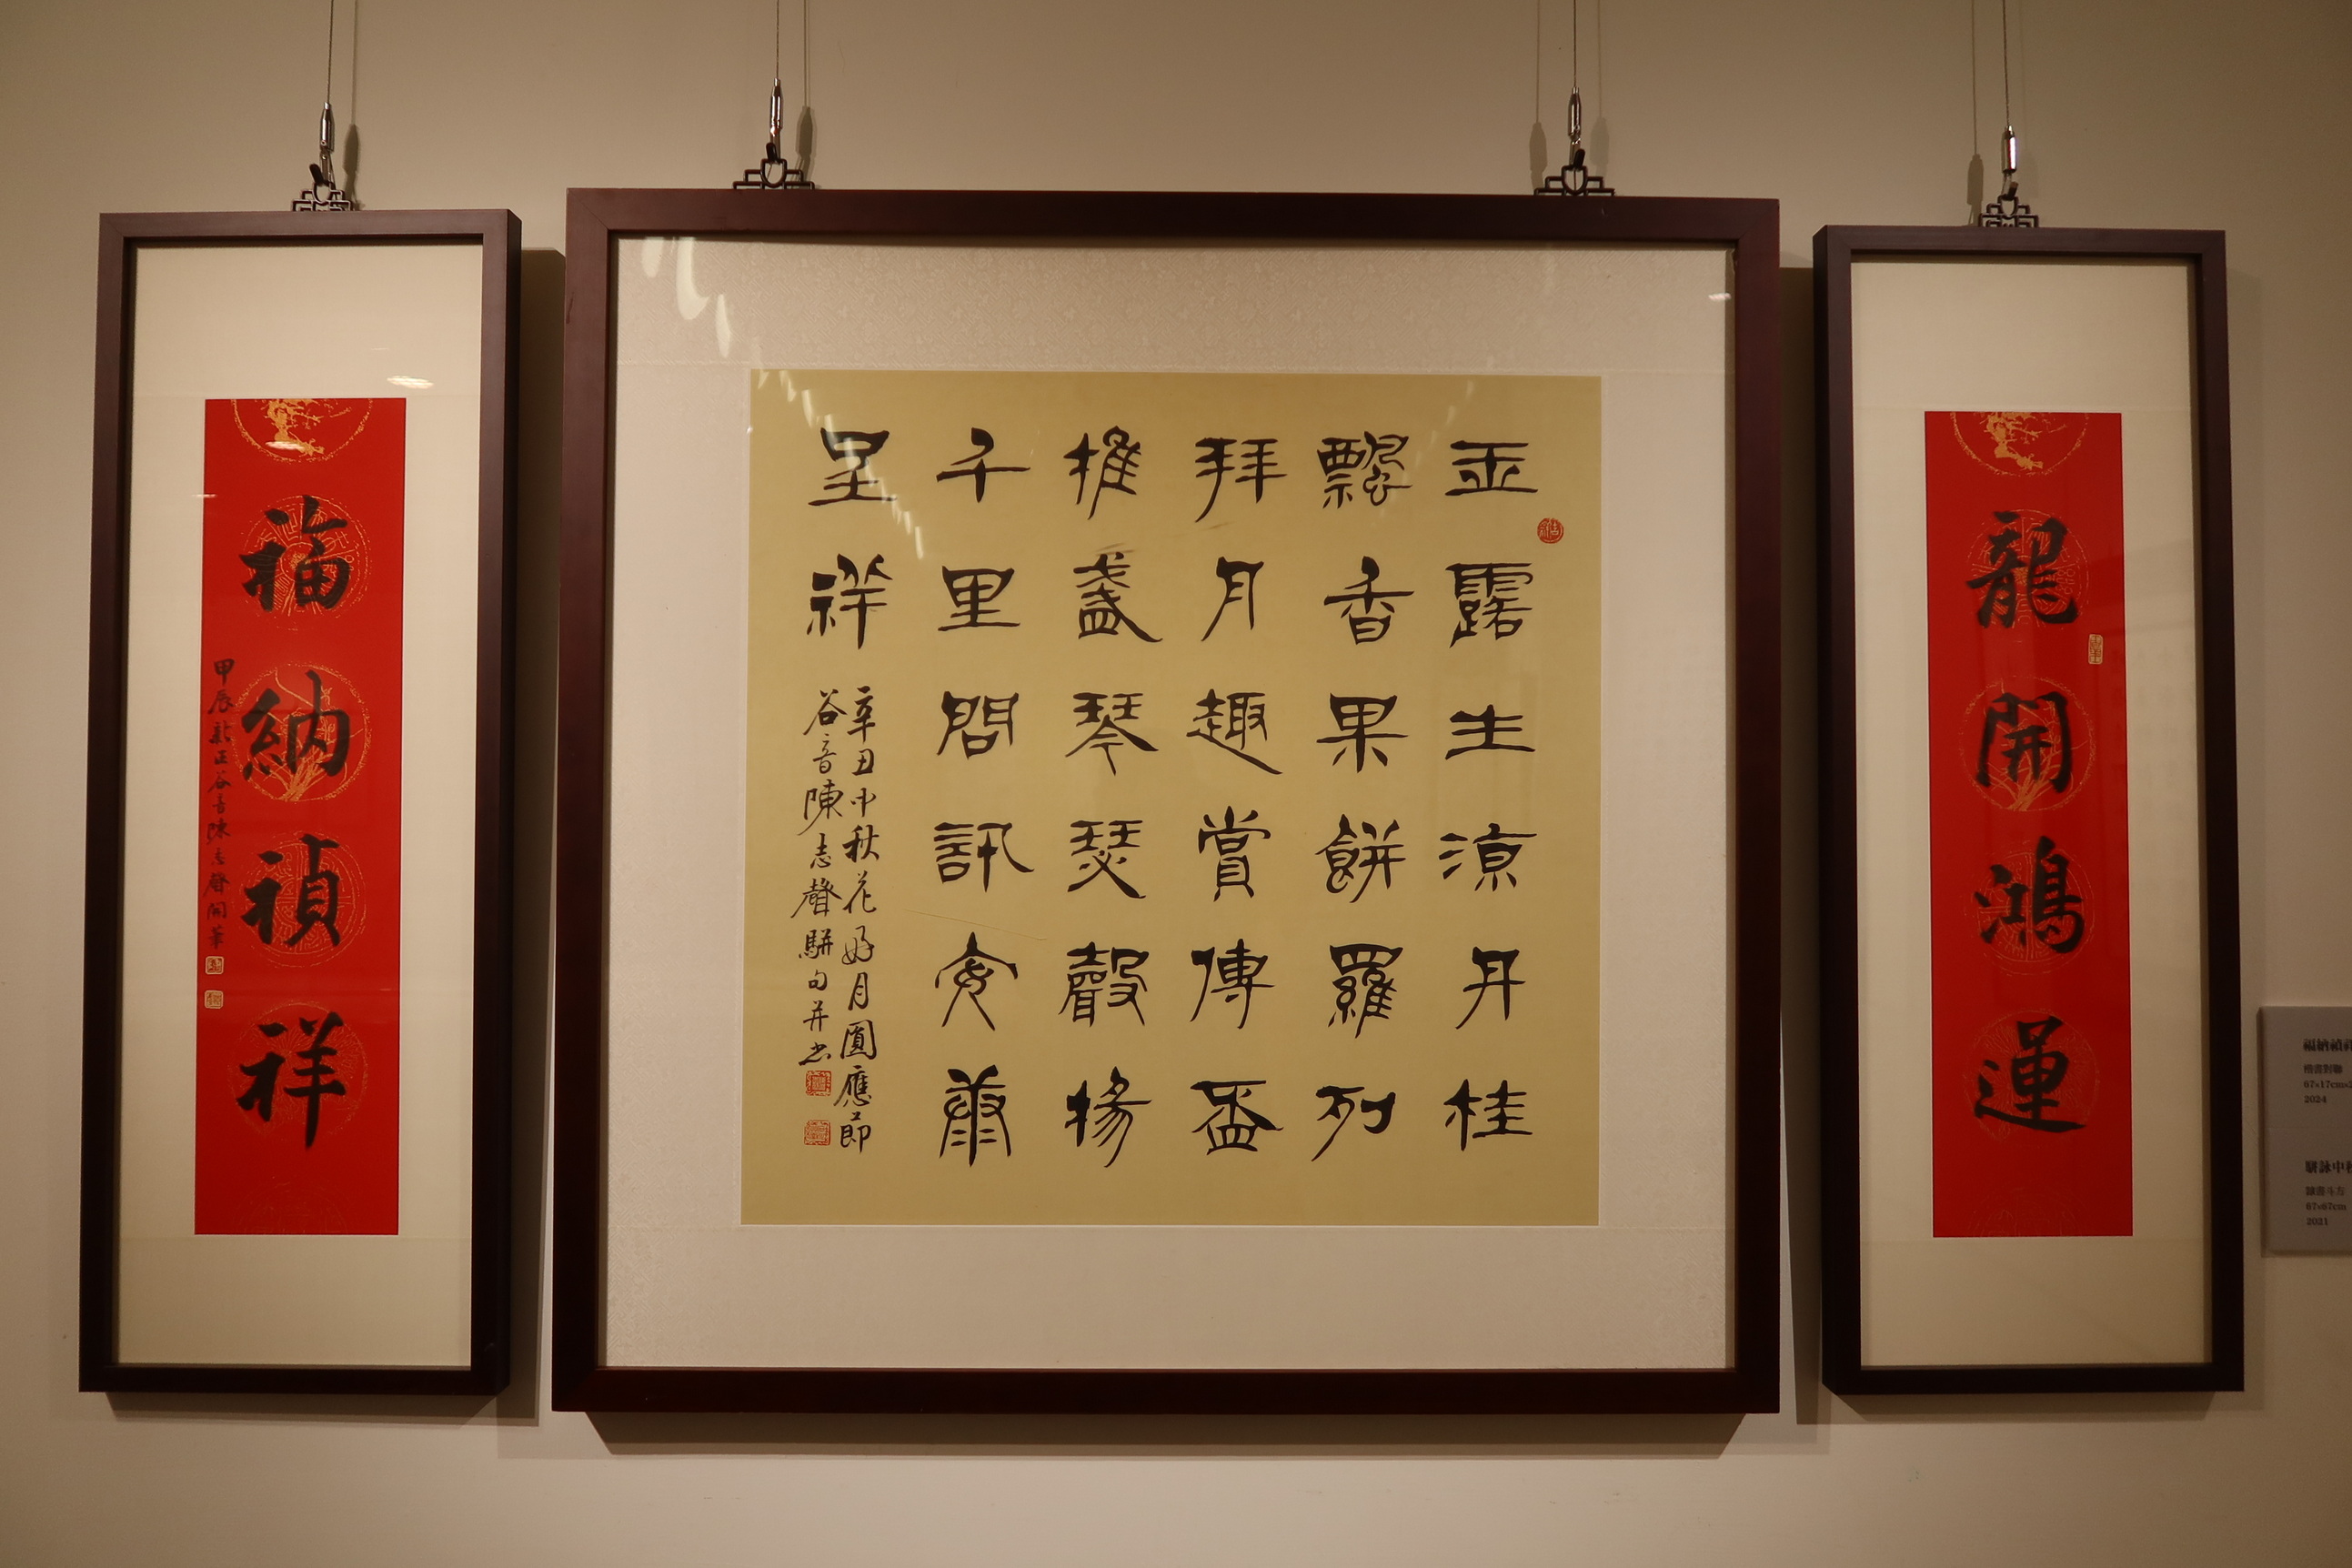 龍開鴻運
玉露生涼丹桂
飄香果餅羅列
拜月趣賞傳盃
推盞琴瑟聲揚
千里問訊安康
呈祥
辛丑中秋花好月圓應節
谷音陳志聲駢句并書
福納禎祥
甲辰新正谷音陳志聲開筆
福納禎
楷書對聯
67×17cm×
2024
駢詠中
隸書斗方
67×67cm
2021